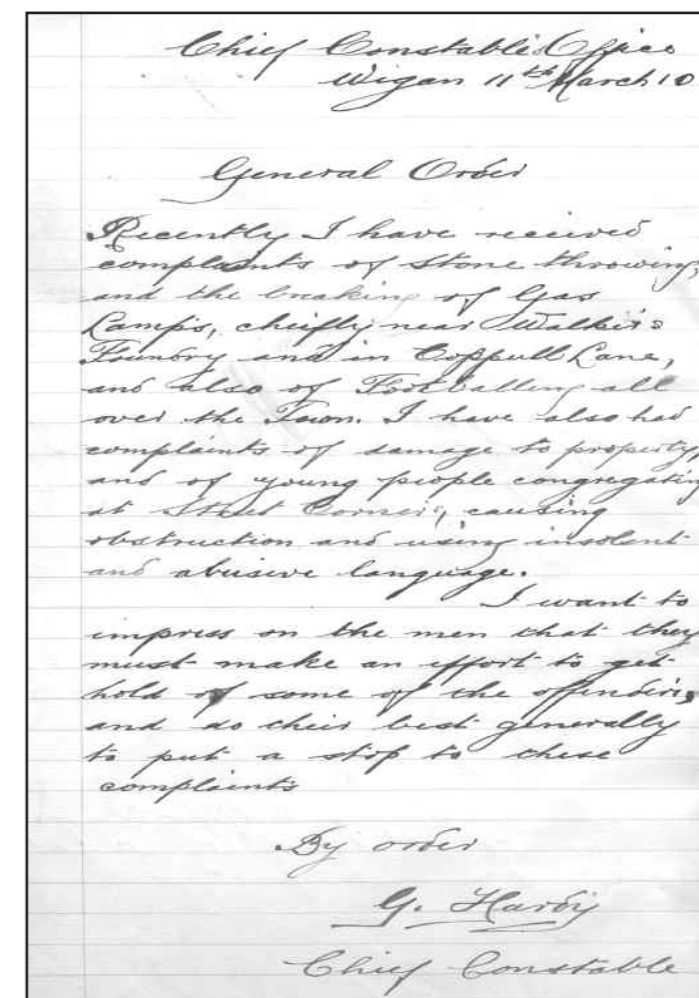 Chief Constable's Office
Wigan 11th March 10
General Order
Recently I have received
complaints of stone throwing,
and the breaking of Gas
Lamps, cheifly near Walker's
Foundry and in Coppull Lane,
and also of Footballing all
over the Town. I have also had
complaints of damage to property,
and of young people congregating
at Street Corners, causing
obstruction and using insolent
and abusive language.
I want to
impress on the men that they
must make an effort to get
hold of some of the offenders,
and do their best generally
to put a stop to these
complaints
By order
G. Hardy
Chief Constable